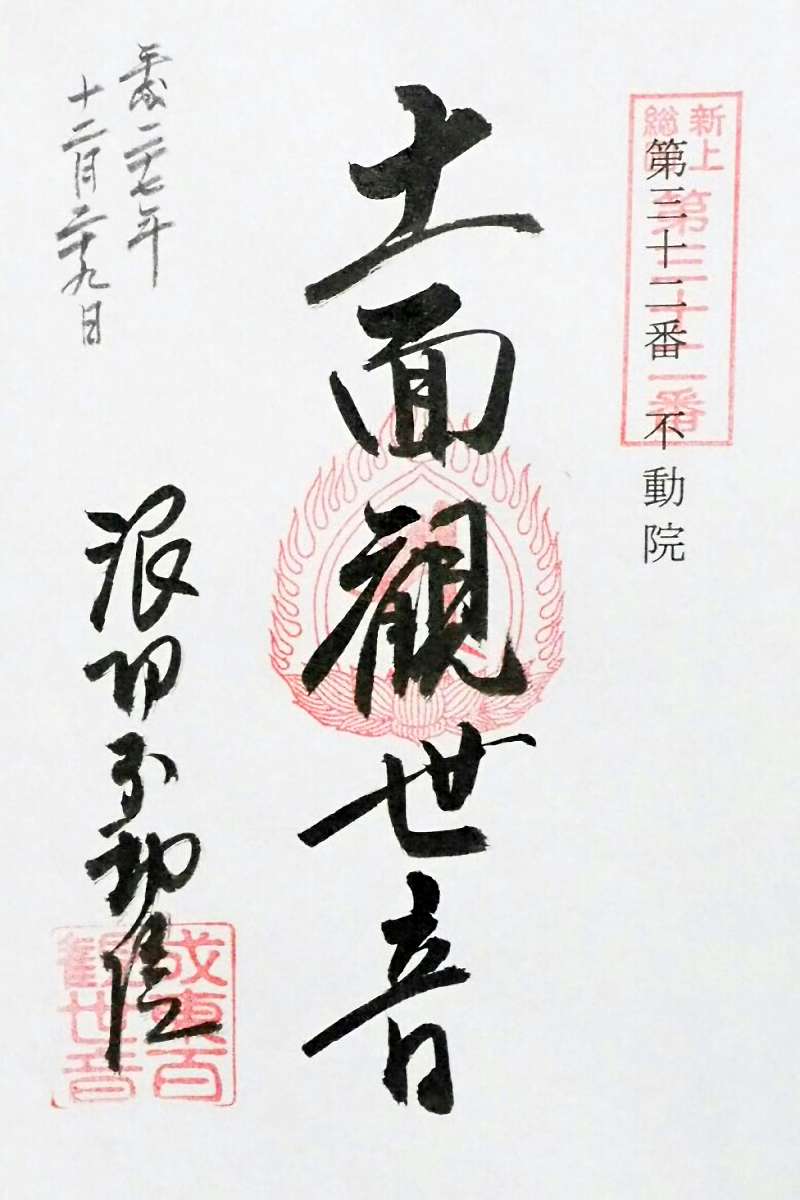 新上
総国
第三十二番
第三十二番 不動院
十一面観世音
浪切不動院
成東百
観世音
平成二十七年
十二月二十九日